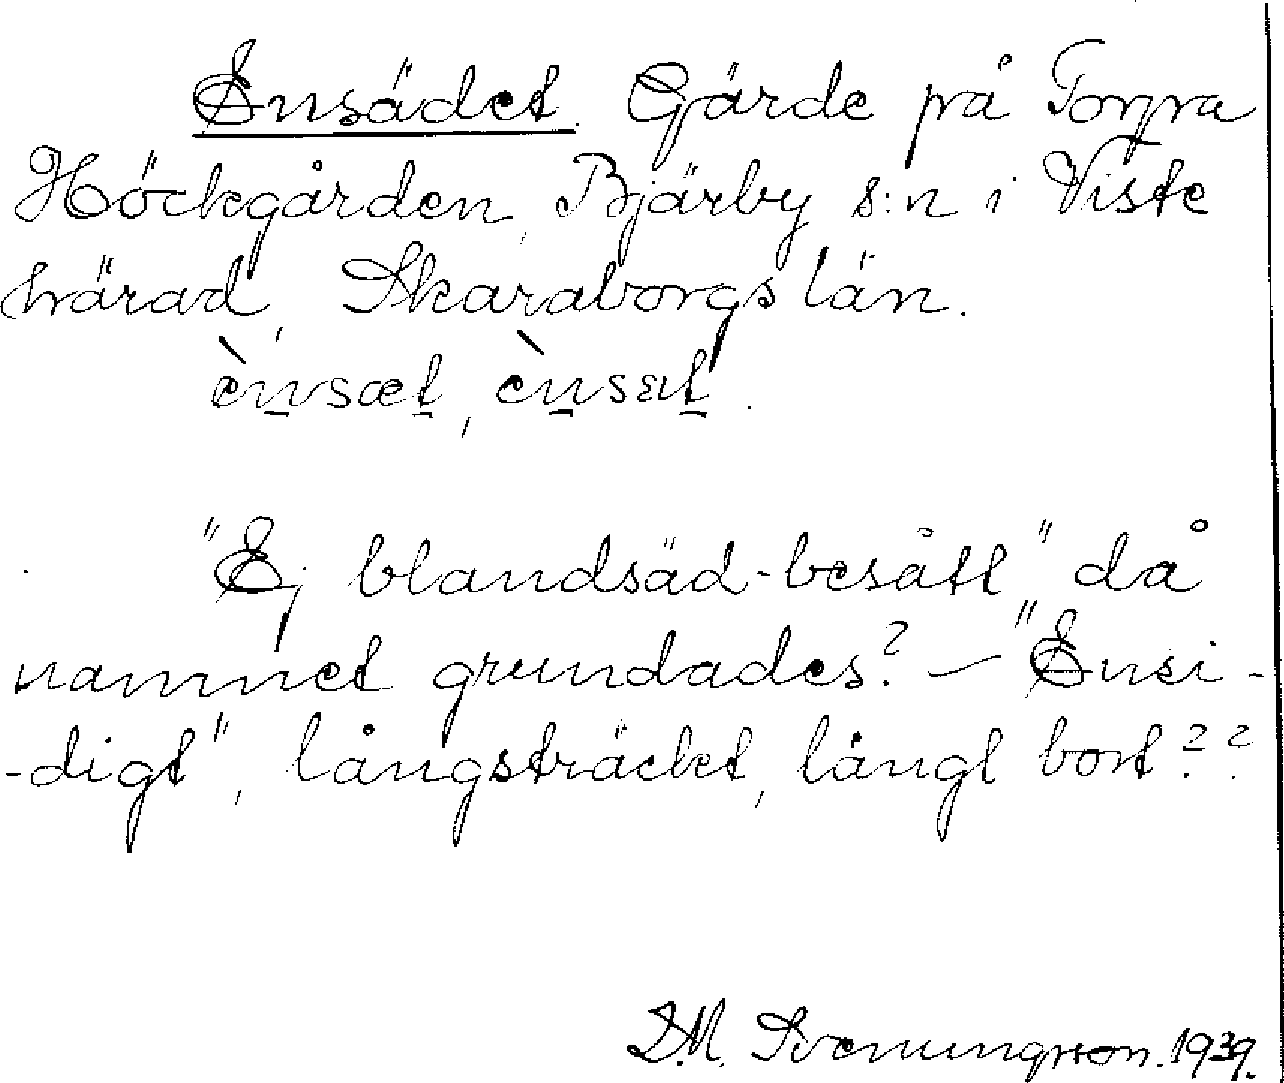 Ensädet. Gärde på Torpa
Höckgården, Bjärby s:n i Viste
härad, Skaraborgs län.
ènsæt, ènsat.
"Ej blandsäd-besått" då
namnet grundades? — "Ensi-
-digt", långsträckt, långt bort??
D.M. Svenungsson. 1939.